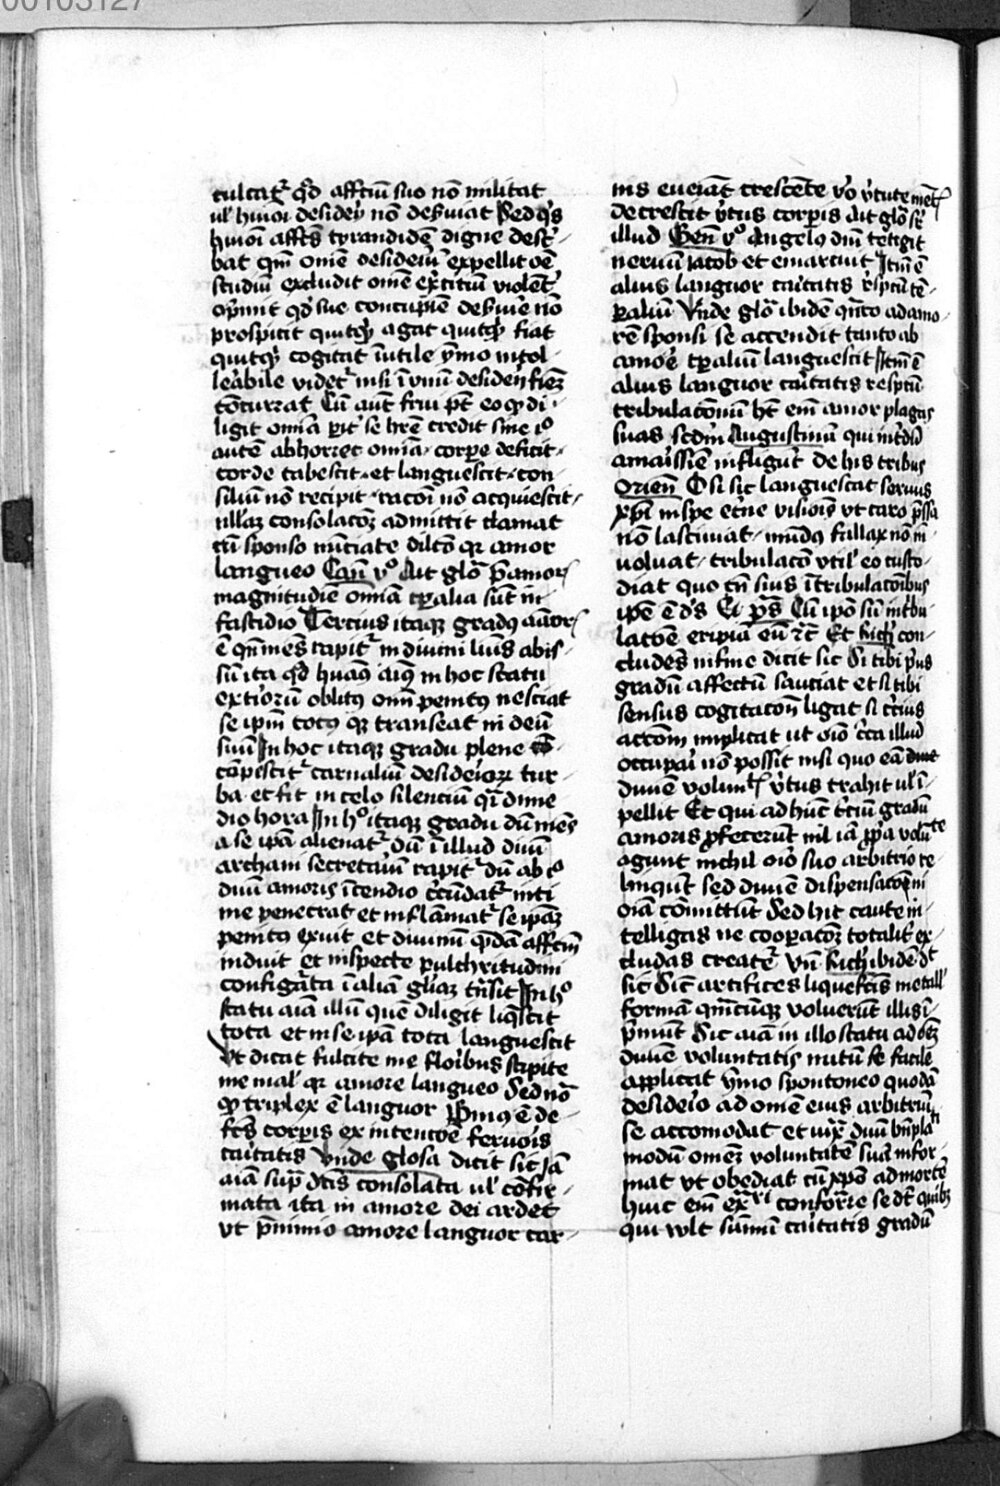 00103127
culcatᷣ qd̓ affc̄ui suo nō militat
ul̓ huioī desideꝝ nō deẜuiat Sed qͥs
huiōi affc̄s tyrandidē digne descͥ-
bat qm̄ omē desideiū expellit oē
studiū excludit omē ex̓citiū violent̓
op̓mit qd̓ sue concupiē deẜuiē nō
prospicit quitqͥd agat quitqͥd fiat
quitqͥd cogitat īutile ymo intol-
lerābile videtᷣ nisi ī vnū desideꝝ
cōcurrat Cū aūt frui pt̄ eo qd̓ di-
ligit omīa pit̓ se hr̄e credit sine iͦ
autē abhorret omīa · corpe deficit ·
corde tabescit · et languescit · con
siliū nō recipit · racōi nō acquiescit ·
ullaꝫ consolacōꝫ admittit clamat
cū sponso nūciate dilc̄o qr amor
langueo Can̄ vͦ Ait glō p̄ amoꝝ
magnitudīe omīa tꝑalia sūt in
fastidio Tercius itaqꝫ gradꝰ amoꝝ
ē qn̄ mēs rapitᷣ in diuini lūis abis-
sū ita qd̓ huāꝰ aīꝰ in hoc statu
ext̓iorū oblitꝰ oīm penitꝰ nesciat
se ipm̄ totꝰ qꝫ transeat in deū
suū In hoc itaqꝫ gradu plene cō-
cōpescitᷣ carnaliū desideꝝ tur-
ba · et fit in celo silenciū qͣi dimi
dio hora In hͦ itaqꝫ gradu dū mēs
a se ipā alienatᷣ dū ī illud diuīi
archani secretariū rapitᷣ dū ab iͦ
diuīi amoris īcendio cͥcūdatᷣ inti
me penetrat et inflāmatᷣ se ipāꝫ
penitꝰ exuit et diuinū qͥdā affc̄m
induit et inspecte pulchritudini
configͣta ī aliā gl̓iaꝫ tͣnsit In hͦ
statu aīa illū quē diligit liqͥscit
tota et in se ipā tota languescit
Vt dicat fulcite me floribus stipite
me mal̓ qr amore langueo Sed nō
qd̓ triplex ē languor Pͥmꝰ ē de-
fcs̄ corpis ex intencōē feruois
caͥtatis Vnde glosa dicit sic iā
aīa supͣ dc̄is consolata ul̓ cōfir-
mata ita in amore dei ardet
ut p̄ nimio amore languor car-
nis eueiat crescēte vͦo v̓tute mētͫ
decrescit v̓tus corpis Ait glō sꝑ
illud Gen̄ vͦ Angelꝰ dn̄i tetigit
neruū iacob et emarcuit Itm̄ ē
alius languor caͥtatis respc̄u tē-
paliū Vnde glō ibidē qnͣto ad amo-
rē sponsi se accendit tanto ab
amōe tꝑaliū languescit Itm̄ ē
alius languor caͥtatis respc̄u
tribulacōnū hꝫ em̄ amor plagas
suas scdm̄ Augustinū qui int̓dū
amaͥssīe infligūt̓ De his tribus
Origen̄ O si sic languescat seruus
xp̄i in spe et̓ne visiōis vt caro p̄ssa
nō lasciuiat · mūdꝰ fallax nō in
uoluat · tribulacō vtil̓ eo custo-
diat quo tn̄ suis ītribulacōibus
ip̄e ē dꝰs Et p̄s Cū ipō sū in tͥbu
lacōē eripiā eū ꝛc̄ Et Rich̓ con-
cludēs in fine dicit sic Si tibi pͥus
gradū affectū sauciat et si tibi
sensus cogitacōn̄ ligat si tͣcius
accōm implicat ut oīo cͥca illud
occupai nō possit nisi quo eā diuīe
diuīe volūtͣtꝭ v̓tus trahit ul̓ ī-
pellit Et qui ad hūc tͣciū gradū
amoris ꝓfecerūt nil iā ꝓpa volūtͣte
agunt nichil oīo suo arbitrio re-
linqūt sed diuīe dispensacōni
oīa cōmittūt Sed hic caute in-
telligas ne coopacōꝫ totalit̓ ex-
cludas creatͥe Vn̄ Rich̓ ibidē dt̄
sic Sic artifices liquefc̄is metall̓
formā qm̄cūqꝫ voluerūt illis ī-
p̓mūt Sic aīa in illo statu ad oēꝫ
diuīe voluntatis nutū se facile
applicat ymo spontoneo quodā
desideͥo ad omē eius arbitriū
se accomodat et iuxͣ diuīi bn̄plaͥti
modū omēꝫ voluntatē suā infor-
mat ut obediat cū xp̄s ad mortē
huic em̄ exͣ vi conforͥe se dt̄ quibꝫ
qui wlt sūmū caͥtatis gradū